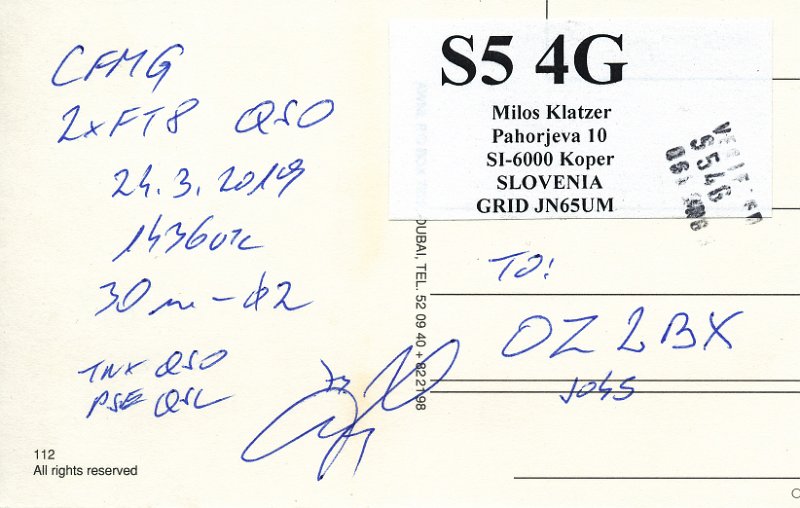 CFMG
2xFT8 QSO
24.3.2019
1436utc
30m -02
TNX QSO
PSE QSL
73
112
All rights reserved
S5 4G
Milos Klatzer
Pahorjeva 10
SI-6000 Koper
SLOVENIA
GRID JN65UM
S54G
DUBAI, TEL. 52 09 40 + 822198
TO:
OZ2BX